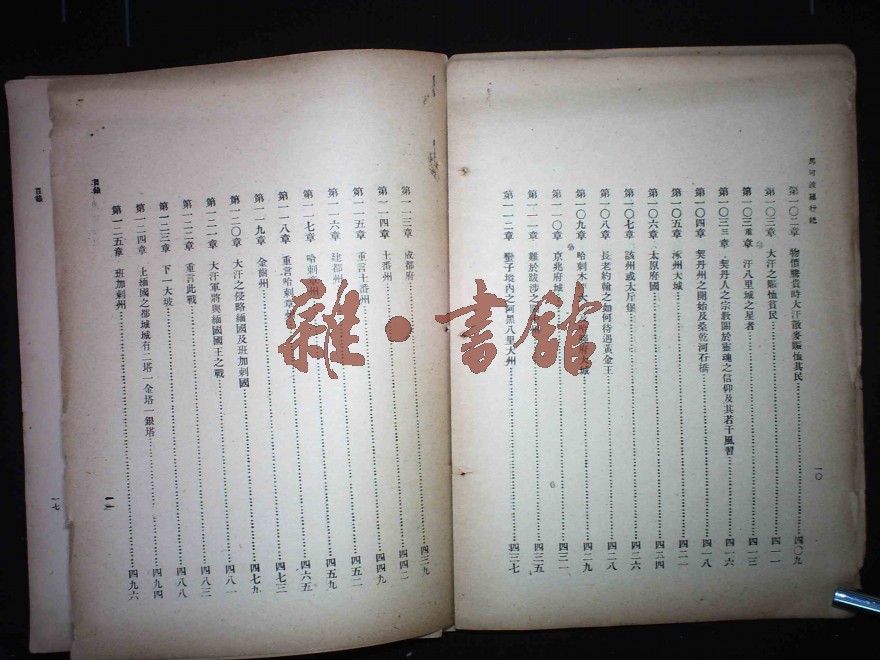 馬可波羅行紀
第一〇二章 物價騰貴時大汗散麥賑恤其民……四〇九
第一〇三章 大汗之賑恤貧民……四一一
第一〇三重章 汗八里城之星者……四一三
第一〇三三章 契丹人之宗教關於靈魂之信仰及其若干風習……四一六
第一〇四章 契丹州之開始及桑乾河石橋……四一八
第一〇五章 涿州大城……四二一
第一〇六章 太原府國……四二四
第一〇七章 該州或太斤堡……四二六
第一〇八章 長老約翰之如何待遇黃金王……四二八
第一〇九章 哈剌木
第一一〇章 京兆府城……四三一
第一一一章 難於跋涉之……四三五
第一一二章 蠻子境內之阿黑八里大州……四三七
一〇
第一一三章 成都府……四三九
第一一四章 土番州……四四二
第一一五章 重言土番州……四四九
第一一六章 建都州……四五二
第一一七章 哈剌章州……四五九
第一一八章 重言哈剌章州……四六五
第一一九章 金齒州……四七三
第一二〇章 大汗之侵略緬國及班加剌國……四七九
第一二一章 大汗軍將與緬國國王之戰……四八一
第一二二章 重言此戰……四八三
第一二三章 下一大坡……四八八
第一二四章 上緬國之都城城有二塔一金塔一銀塔……四九四
第一二五章 班加剌州……四九六
目錄
一一
目錄
一七
雜·書館